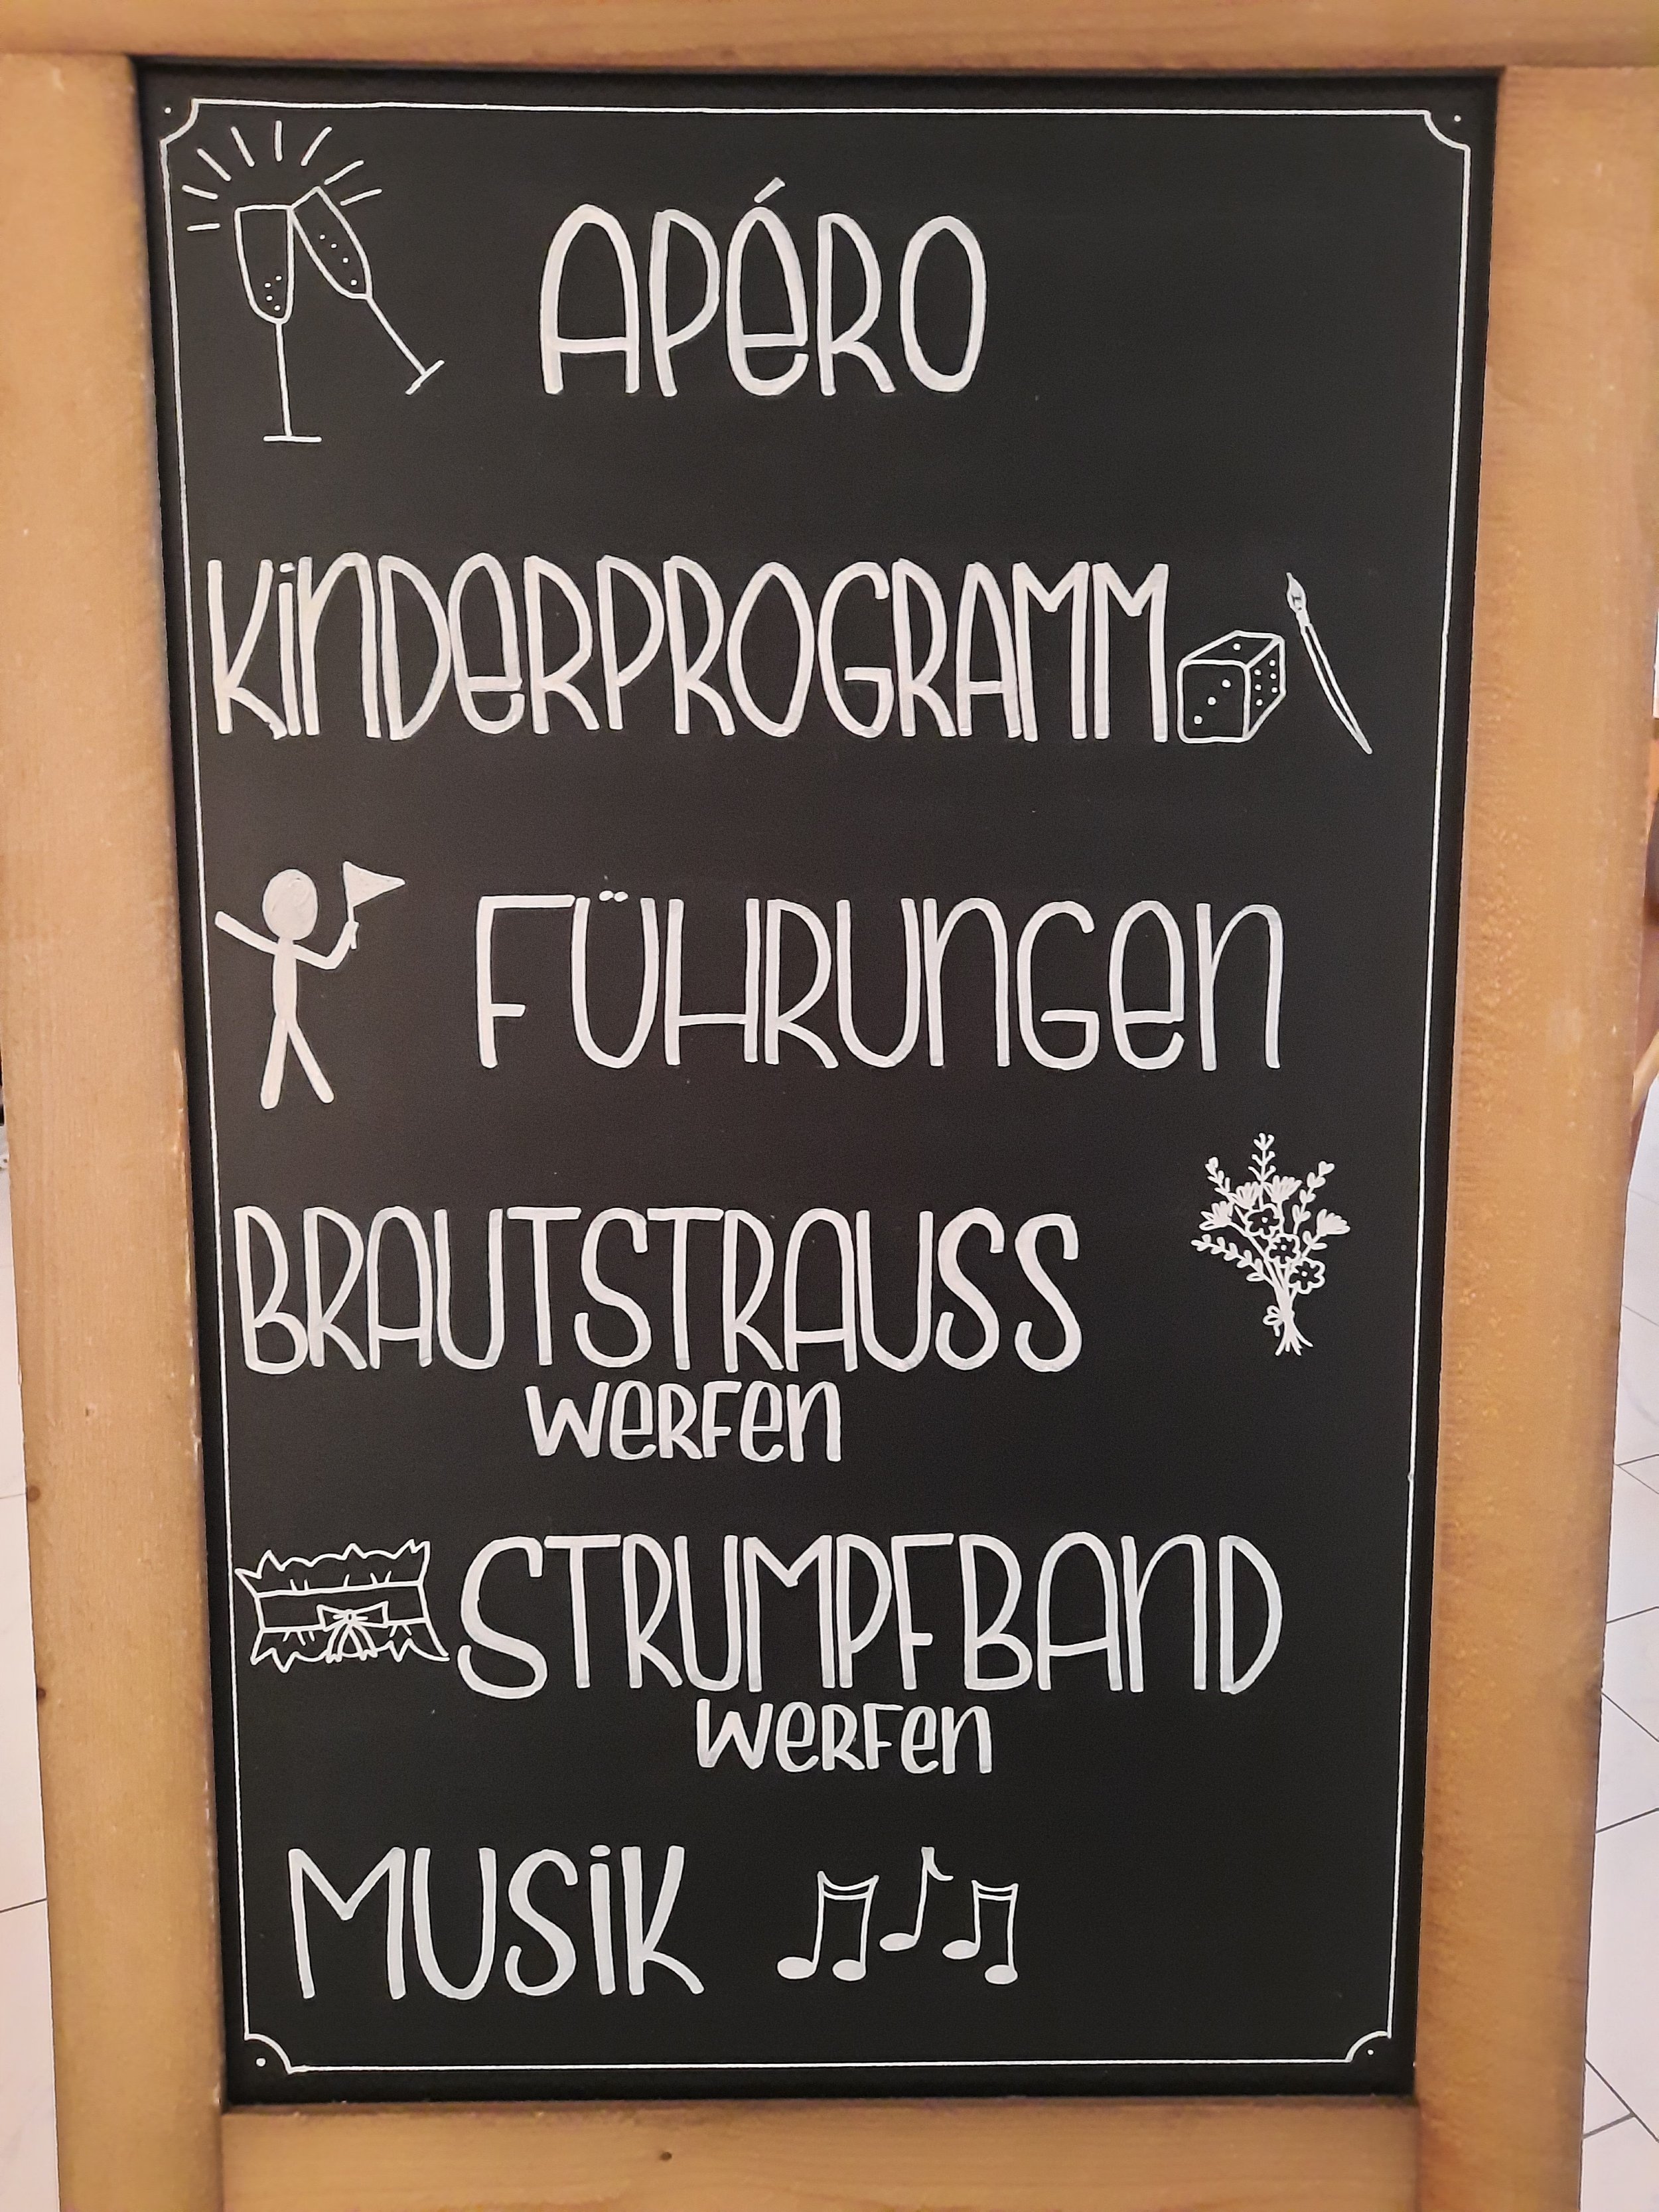 APéRO
KinDeRPROGRAMM
FÜHRUnGen
BRAUTSTRAUSS
weRFen
STRUMPFBAnD
weRFen
MUSiK